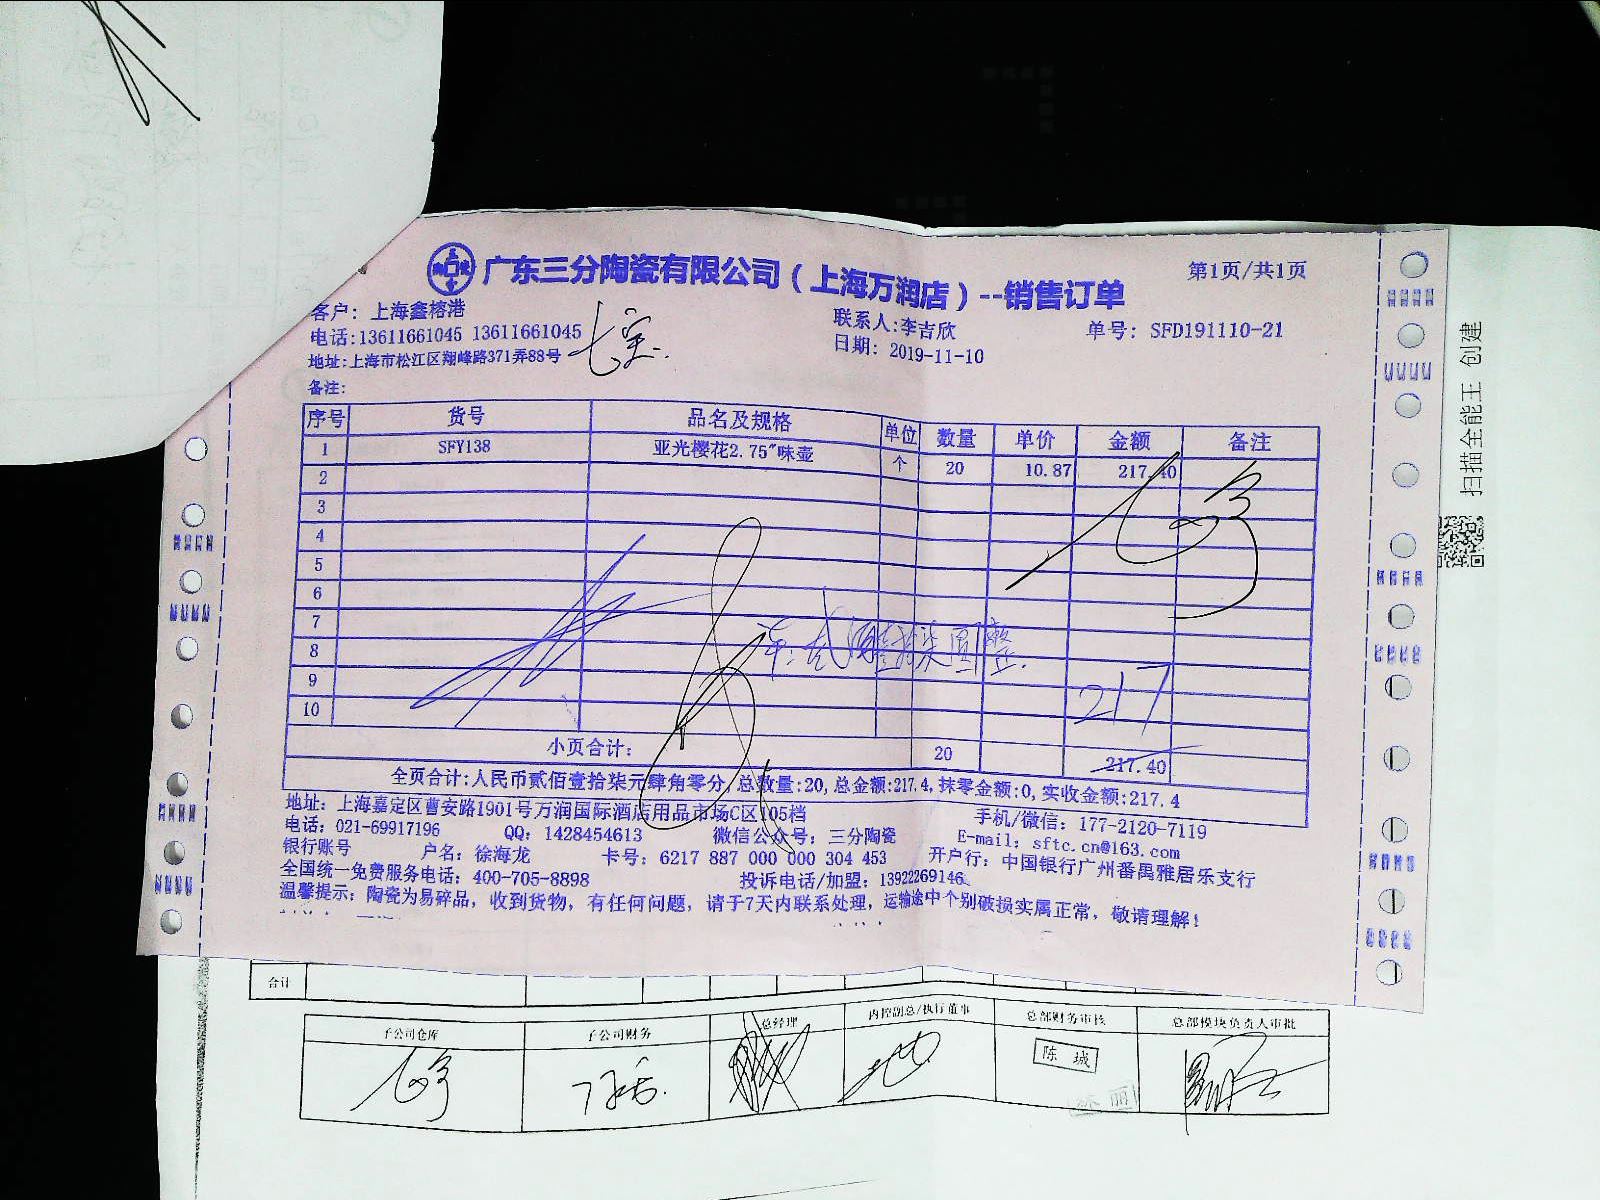 广东三分陶瓷有限公司（上海万润店）--销售订单
第1页/共1页
客户：上海鑫榕港
联系人:李吉欣
单号：SFD191110-21
电话:13611661045 13611661045
日期：2019-11-10
地址:上海市松江区翔峰路371弄88号
七宝
备注:
序号 货号 品名及规格 单位 数量 单价 金额 备注
1 SFY138 亚光樱花2.75"味壶 个 20 10.87 217.40
2
3
4
5
6
7
8
9
10
217
小页合计： 20 217.40
全页合计:人民币贰佰壹拾柒元肆角零分,总数量:20,总金额:217.4,抹零金额:0,实收金额:217.4
地址：上海嘉定区曹安路1901号万润国际酒店用品市场C区105档
手机/微信：177-2120-7119
电话：021-69917196 QQ：1428454613 微信公众号：三分陶瓷 E-mail：sftc.cn@163.com
银行账号 户名：徐海龙 卡号：6217 887 000 000 304 453 开户行：中国银行广州番禺雅居乐支行
全国统一免费服务电话：400-705-8898 投诉电话/加盟：13922269146
温馨提示：陶瓷为易碎品，收到货物，有任何问题，请于7天内联系处理，运输途中个别破损实属正常，敬请理解！
扫描全能王 创建
合计
子公司仓库 子公司财务 总经理 内控副总/执行董事 总部财务审核 总部模块负责人审批
陈城
丽